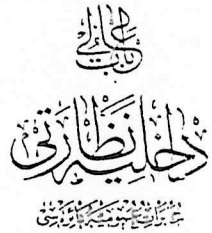 باب عالی
داخلیه نظارتی